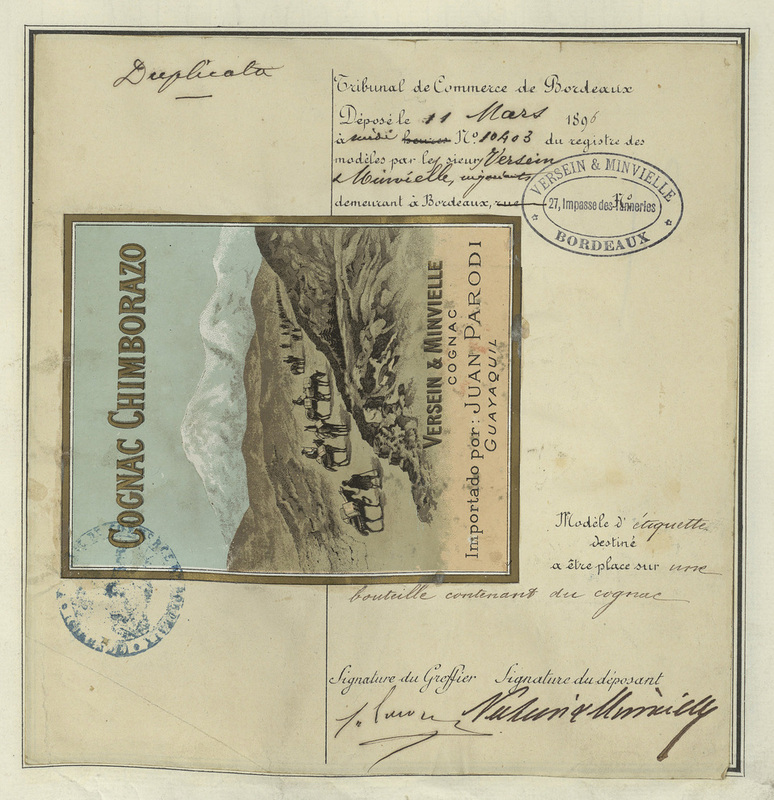 Duplicata
Tribunal de Commerce de Bordeaux
Déposé le 11 Mars 1896
à midi heures No. 10403 du registre des
modèles par les sieur Versein
& Minvielle, négociants
demeurant à Bordeaux, rue No.
VERSEIN & MINVIELLE
27, Impasse des Tanneries
BORDEAUX
COGNAC CHIMBORAZO
VERSEIN & MINVIELLE
COGNAC
Importado por: JUAN PARODI
GUAYAQUIL
Modèle d'étiquette
destiné
a être place sur une
bouteille contenant du cognac
Signature du Greffier Signature du déposant
Versein & Minvielle